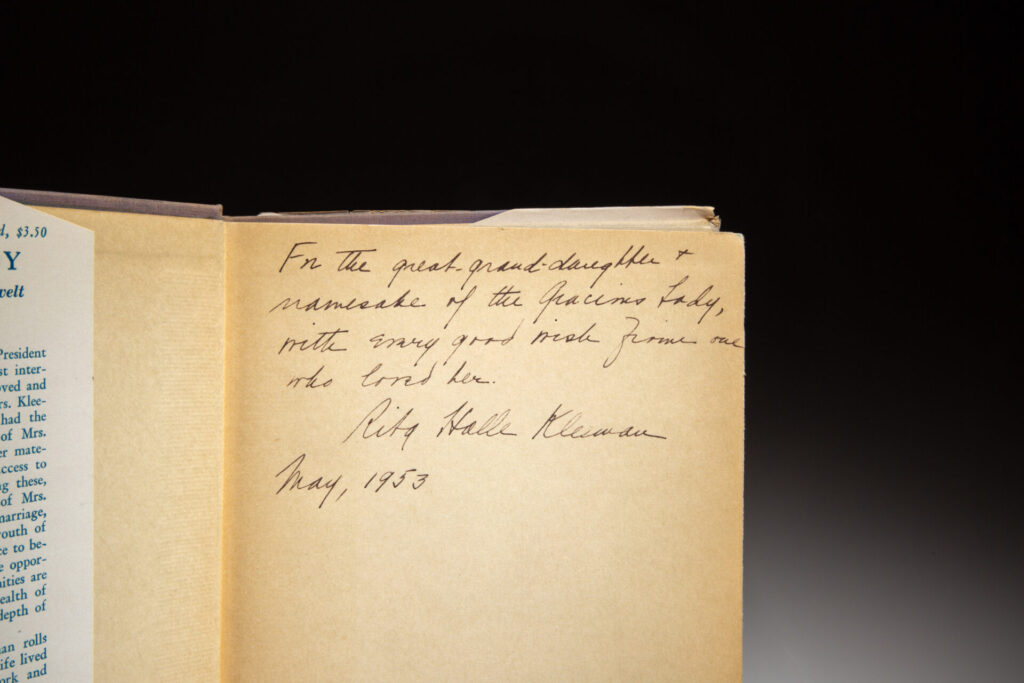 d, $3.50
Y
velt
President
st inter-
oved and
rs. Klee-
had the
of Mrs.
er mate-
ccess to
ng these,
of Mrs.
marriage,
outh of
ce to be-
e oppor-
nities are
ealth of
depth of
an rolls
ife lived
ork and
For the great-grand-daughter +
namesake of the Gracious Lady,
with every good wish from one
who loved her.
Rita Halle Kleeman
May, 1953